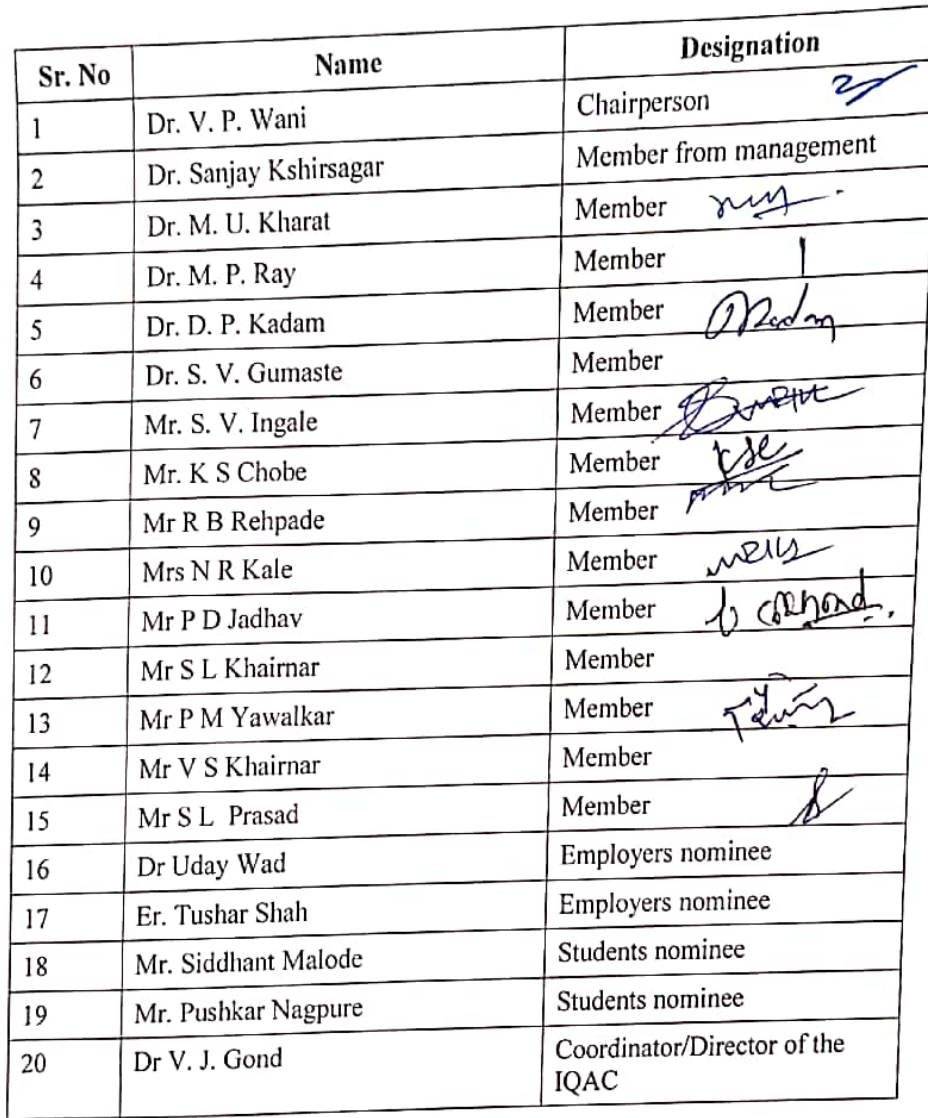 Sr. No Name Designation
1 Dr. V. P. Wani Chairperson
2 Dr. Sanjay Kshirsagar Member from management
3 Dr. M. U. Kharat Member
4 Dr. M. P. Ray Member
5 Dr. D. P. Kadam Member
6 Dr. S. V. Gumaste Member
7 Mr. S. V. Ingale Member
8 Mr. K S Chobe Member
9 Mr R B Rehpade Member
10 Mrs N R Kale Member
11 Mr P D Jadhav Member
12 Mr S L Khairnar Member
13 Mr P M Yawalkar Member
14 Mr V S Khairnar Member
15 Mr S L Prasad Member
16 Dr Uday Wad Employers nominee
17 Er. Tushar Shah Employers nominee
18 Mr. Siddhant Malode Students nominee
19 Mr. Pushkar Nagpure Students nominee
20 Dr V. J. Gond Coordinator/Director of the
IQAC